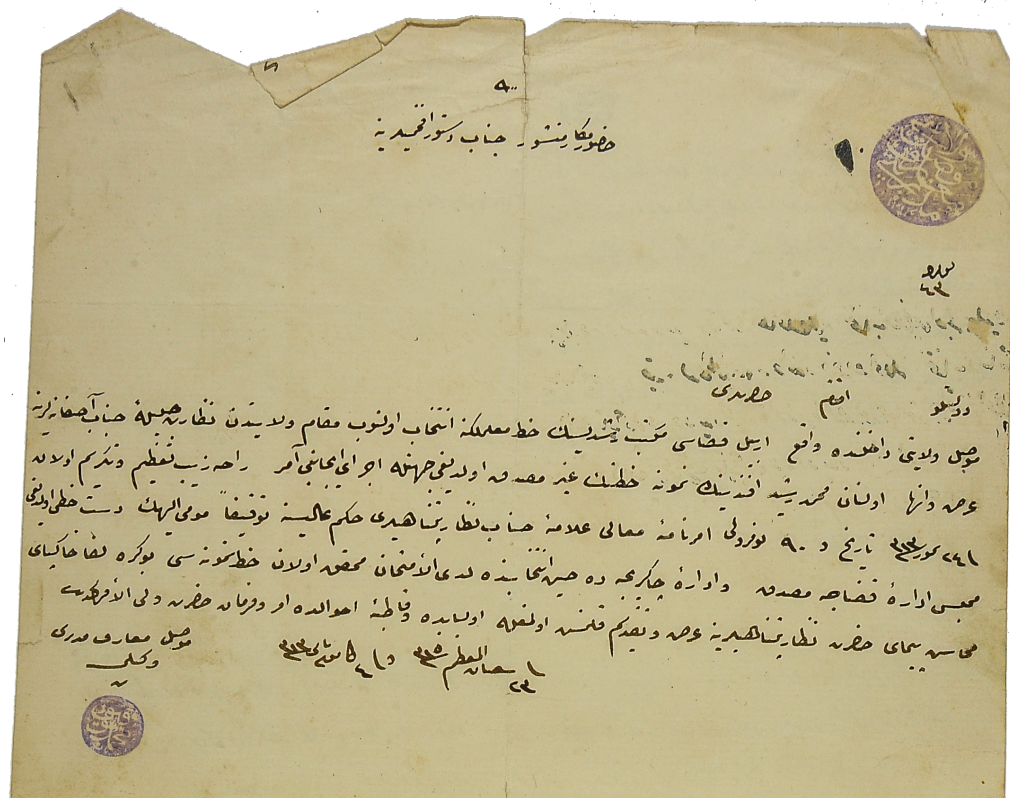 حضور مكارمنشور جناب دستور افخميلرينه
نومرو
٤٣
دولتلو افندم حضرتلرى
موصل ولايتى داخلنده واقع اربيل قضاسى مكتب رشديسنك خط معلملكنه انتخاب اولنوب مقام ولايتدن نظارت جليلهٔ جناب آصفانه‌لرينه
عرض وانها اولنان محمد رشيد افندينك نمونه خطنك غير مصدق اولديغى جهتله اجراى ايجابنى آمر راحه زيب تعظيم وتكريم اولان
٢٤ تموز ٣١٣ تاريخ و ٩٠ نومرولى امرنامهٔ معالى علامهٔ جناب نظارتپناهيلرى حكم عاليسنه توفيقاً مومى اليهك دست خطى اولديغى
مجلس ادارهٔ قضاجه مصدق و ادارهٔ چاكريجه ده حين انتخابنده لدى الامتحان محقق اولان خط نمونه سى بوكره لفا خاكپاى
محاسن پيماى حضرت نظارتپناهيلرينه عرض وتقديم قلنمش اولمغله اولبابده وقاطبهٔ احوالده امر وفرمان حضرت ولى الامركدر
فى ٢٣ شعبان المعظم ٣١٥ و فى ٤ كانون ثانى ٣١٣
موصل معارف مديرى
وكيلى